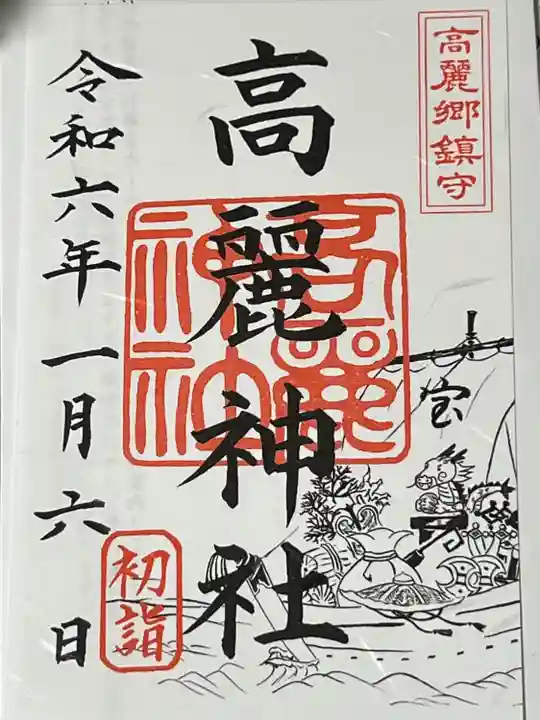 高麗郷鎮守
高麗神社
宝
令和六年一月六日
初詣